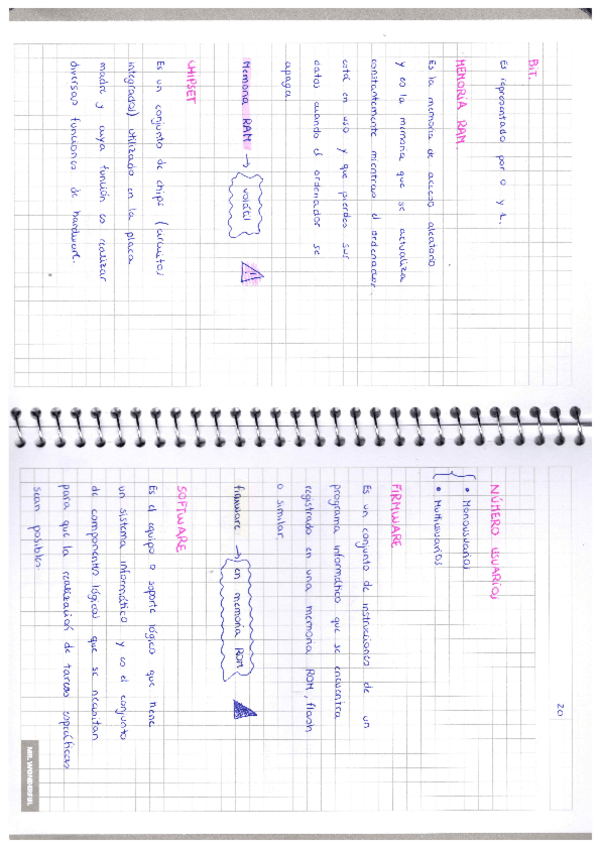 BIT.
Es representado por 0 y 1.
MEMORIA RAM.
Es la memoria de acceso aleatorio
y es la memoria que se actualiza
constantemente mientras el ordenador
está en uso y que pierdes sus
datos cuando el ordenador se
apaga.
Memoria RAM → volátil !
CHIPSET
Es un conjunto de chips (circuitos
integrados) utilizado en la placa
madre y cuya función es realizar
diversas funciones de hardware.
20
NÚMERO USUARIOS
• Monousuarios
• Multiusuarios
FIRMWARE
Es un conjunto de instrucciones de un
programa informático que se encuentra
registrado en una memoria ROM, flash
o similar.
firmware → en memoria ROM
SOFTWARE
Es el equipo o soporte lógico que tiene
un sistema informático y es el conjunto
de componentes lógicos que se necesitan
para que la realización de tareas específicas
sean posibles.
MR. WONDERFUL